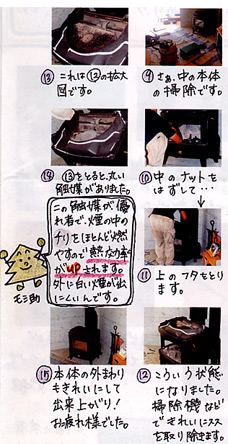 ⑨ さぁ、中の本体
の掃除です。
⑩ 中のナットを
はずして…
↓
⑪ 上のフタをとり
ます。
⑫ こういう状態
になりました。
掃除機などで
きれいにススを
取り除きます。
⑬ これは⑫の拡大
図です。
⑭ ⑬をとると丸い
触媒がありました。
この触媒が優
れ者で、煙の中の
チリをほとんど燃
やすので熱効率
がUPされます。
外に白い煙が出
にくいんです。
モミ助
⑮ 本体の外まわり
もきれいにして
出来上がり!
お疲れ様でした。